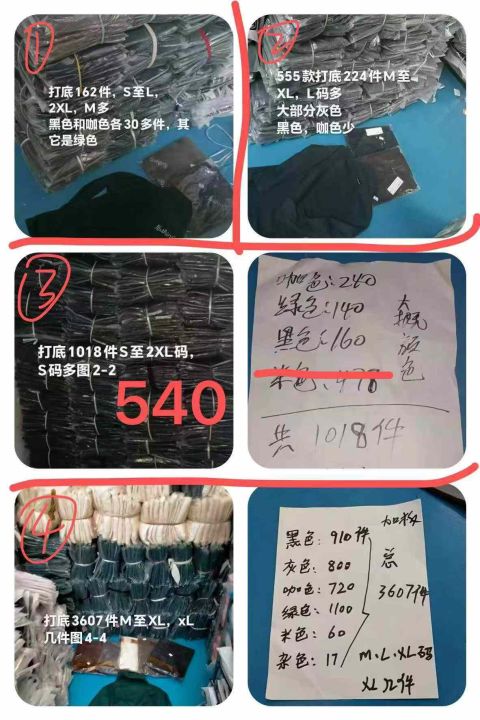 ①
打底162件，S至L，
2XL，M多
黑色和咖色各30多件，其
它是绿色
②
555款打底224件M至
XL，L码多
大部分灰色
黑色，咖色少
③
打底1018件S至2XL码，
S码多图2-2
540
咖色:240
绿色:140
黑色:160
米色:478
共1018件
大概颜色
④
打底3607件M至XL，xL
几件图4-4
黑色:910件
灰色:800
咖色:720
绿色:1100
米色:60
杂色:17
总
3607件
M·L·XL码
XL几件